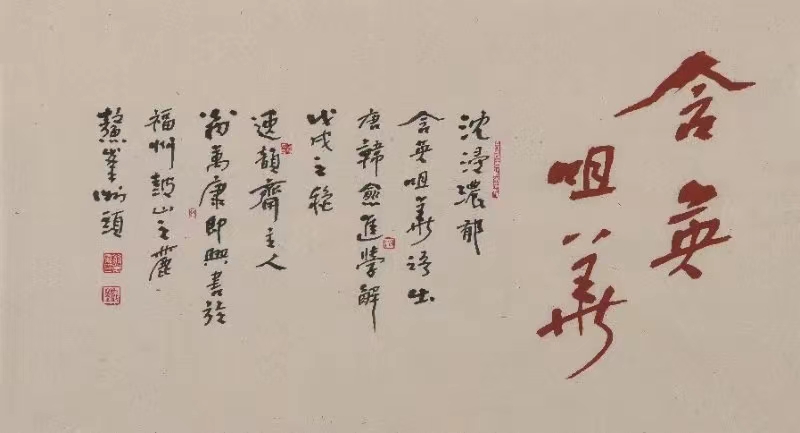 含英
咀華
沈浸濃郁
含英咀華語出
唐韓愈進學解
戊戌之秋
連韻齋主人
翁萬康即興書於
福州鼓山之麓
鰲峯洲頭